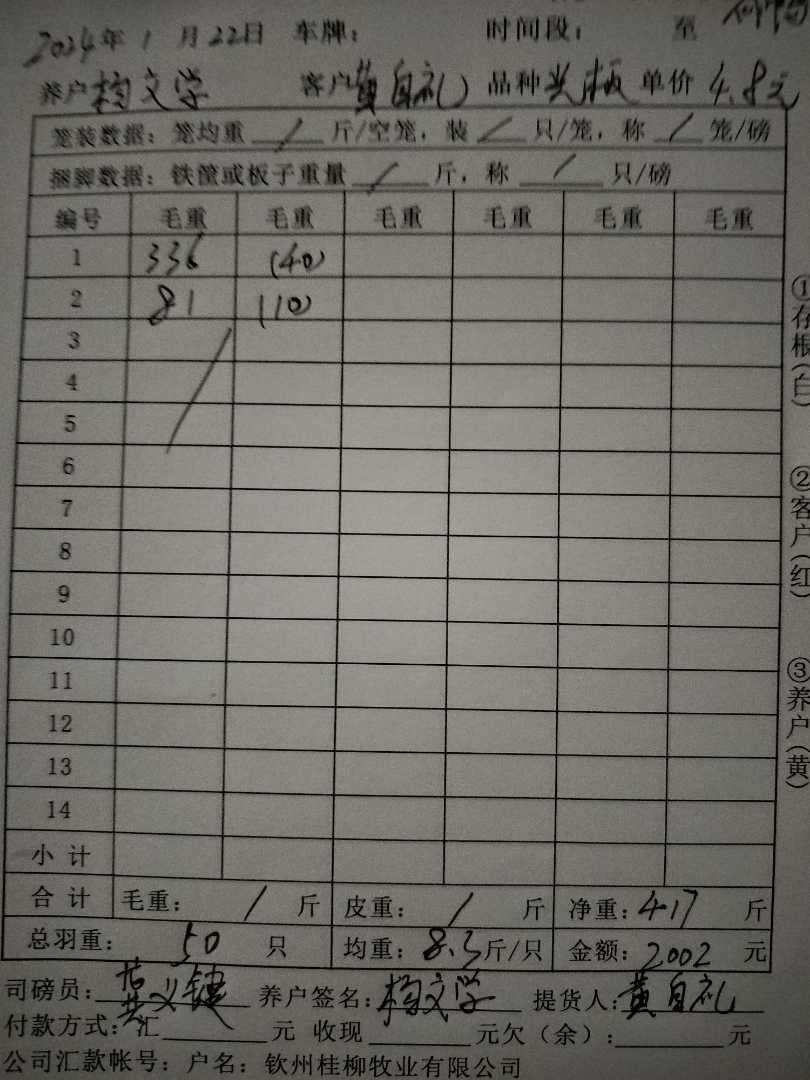 2024年 1 月 22日 车牌： 时间段： 至
养户 杨文学 客户 黄自礼 品种 単价 4.8元
笼装数据：笼均重 / 斤/空笼，装 / 只/笼，称 / 笼/磅
捆脚数据：铁筐或板子重量 / 斤，称 / 只/磅
编号 毛重 毛重 毛重 毛重 毛重 毛重
1 336 (40)
2 81 (10)
3
4
5
6
7
8
9
10
11
12
13
14
小 计
合 计 毛重： / 斤 皮重： / 斤 净重：417 斤
总羽重： 50 只 均重：8.3斤/只 金额：2002 元
司磅员： 养户签名：杨文学 提货人：黄自礼
付款方式：汇 元 收现 元欠（余）： 元
公司汇款帐号：户名：钦州桂柳牧业有限公司
①存根(白)
②客户(红)
③养户(黄)